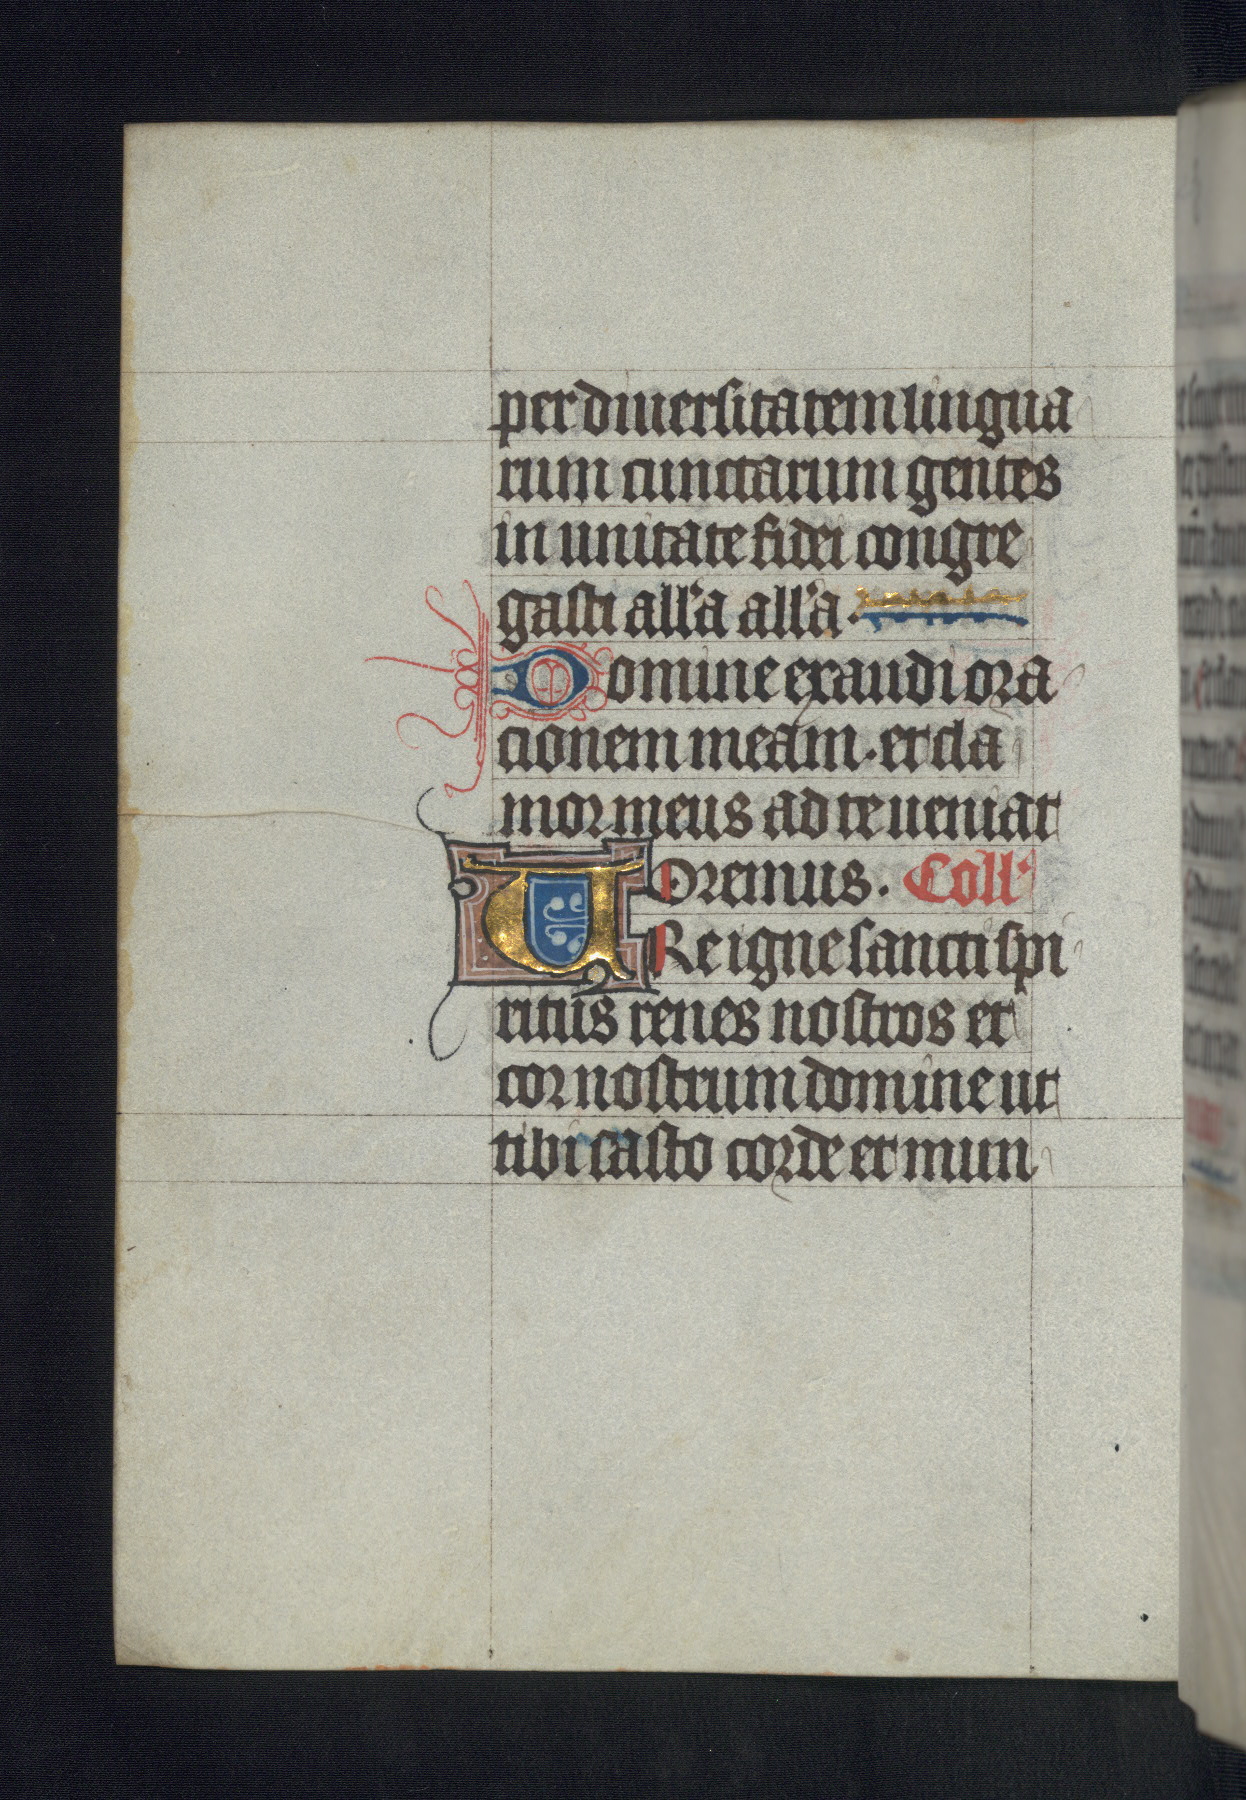 per diuersitatem lingua
rum cunctarum gentes
in unitate fidei congre
gasti all'a all'a.
Domine exaudi ora
cionem meam. et cla
mor meus ad te ueniat
Oremus. Coll'
URe igne sancti spi
ritus renes nostros et
cor nostrum domine ut
tibi casto corde et mun